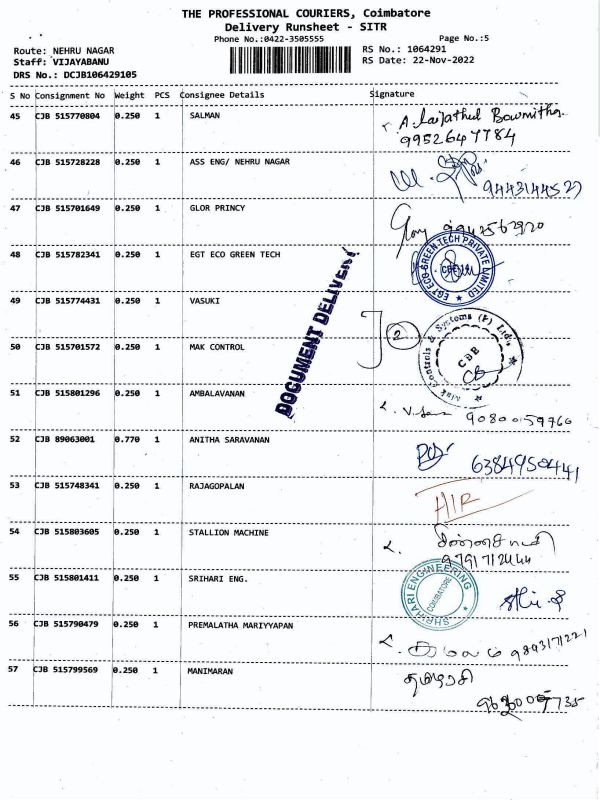 THE PROFESSIONAL COURIERS, Coimbatore
Delivery Runsheet - SITR
Phone No.:0422-3505555
Page No.:5
Route: NEHRU NAGAR
RS No.: 1064291
Staff: VIJAYABANU
RS Date: 22-Nov-2022
DRS No.: DCJB106429105
S No Consignment No Weight PCS Consignee Details Signature
45 CJB 515770804 0.250 1 SALMAN
9952647784
46 CJB 515728228 0.250 1 ASS ENG/ NEHRU NAGAR
9443144527
47 CJB 515701649 0.250 1 GLOR PRINCY
Glory
48 CJB 515782341 0.250 1 EGT ECO GREEN TECH
EGT ECO GREEN TECH PRIVATE LIMITED
CBE
DOCUMENT DELIVERY
49 CJB 515774431 0.250 1 VASUKI
2
50 CJB 515701572 0.250 1 MAK CONTROL
Mak Controls & Systems (P) Ltd.
CBB
51 CJB 515801296 0.250 1 AMBALAVANAN
9080059760
52 CJB 89063001 0.770 1 ANITHA SARAVANAN
6384950441
53 CJB 515748341 0.250 1 RAJAGOPALAN
HIR
54 CJB 515803605 0.250 1 STALLION MACHINE
9791712444
55 CJB 515801411 0.250 1 SRIHARI ENG.
SHRIHARI ENGINEERING
COIMBATORE
56 CJB 515790479 0.250 1 PREMALATHA MARIYYAPAN
கமலம் 9893171221
57 CJB 515799569 0.250 1 MANIMARAN
தமிழரசி